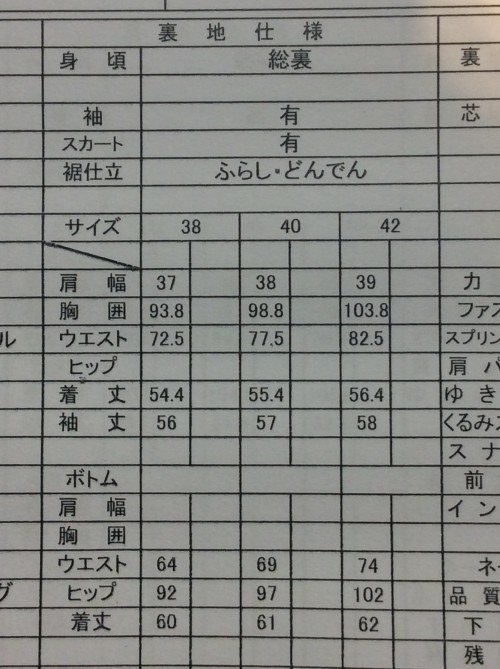 裏地仕様
身頃 総裏 裏
袖 有 芯
スカート 有
裾仕立 ふらし・どんでん
サイズ 38 40 42
肩幅 37 38 39 力
胸囲 93.8 98.8 103.8 ファス
ル ウエスト 72.5 77.5 82.5 スプリン
ヒップ 肩パ
着丈 54.4 55.4 56.4 ゆき
袖丈 56 57 58 くるみス
スナ
ボトム 前
肩幅 イン
胸囲
ウエスト 64 69 74 ネー
グ ヒップ 92 97 102 品質
着丈 60 61 62 下
残